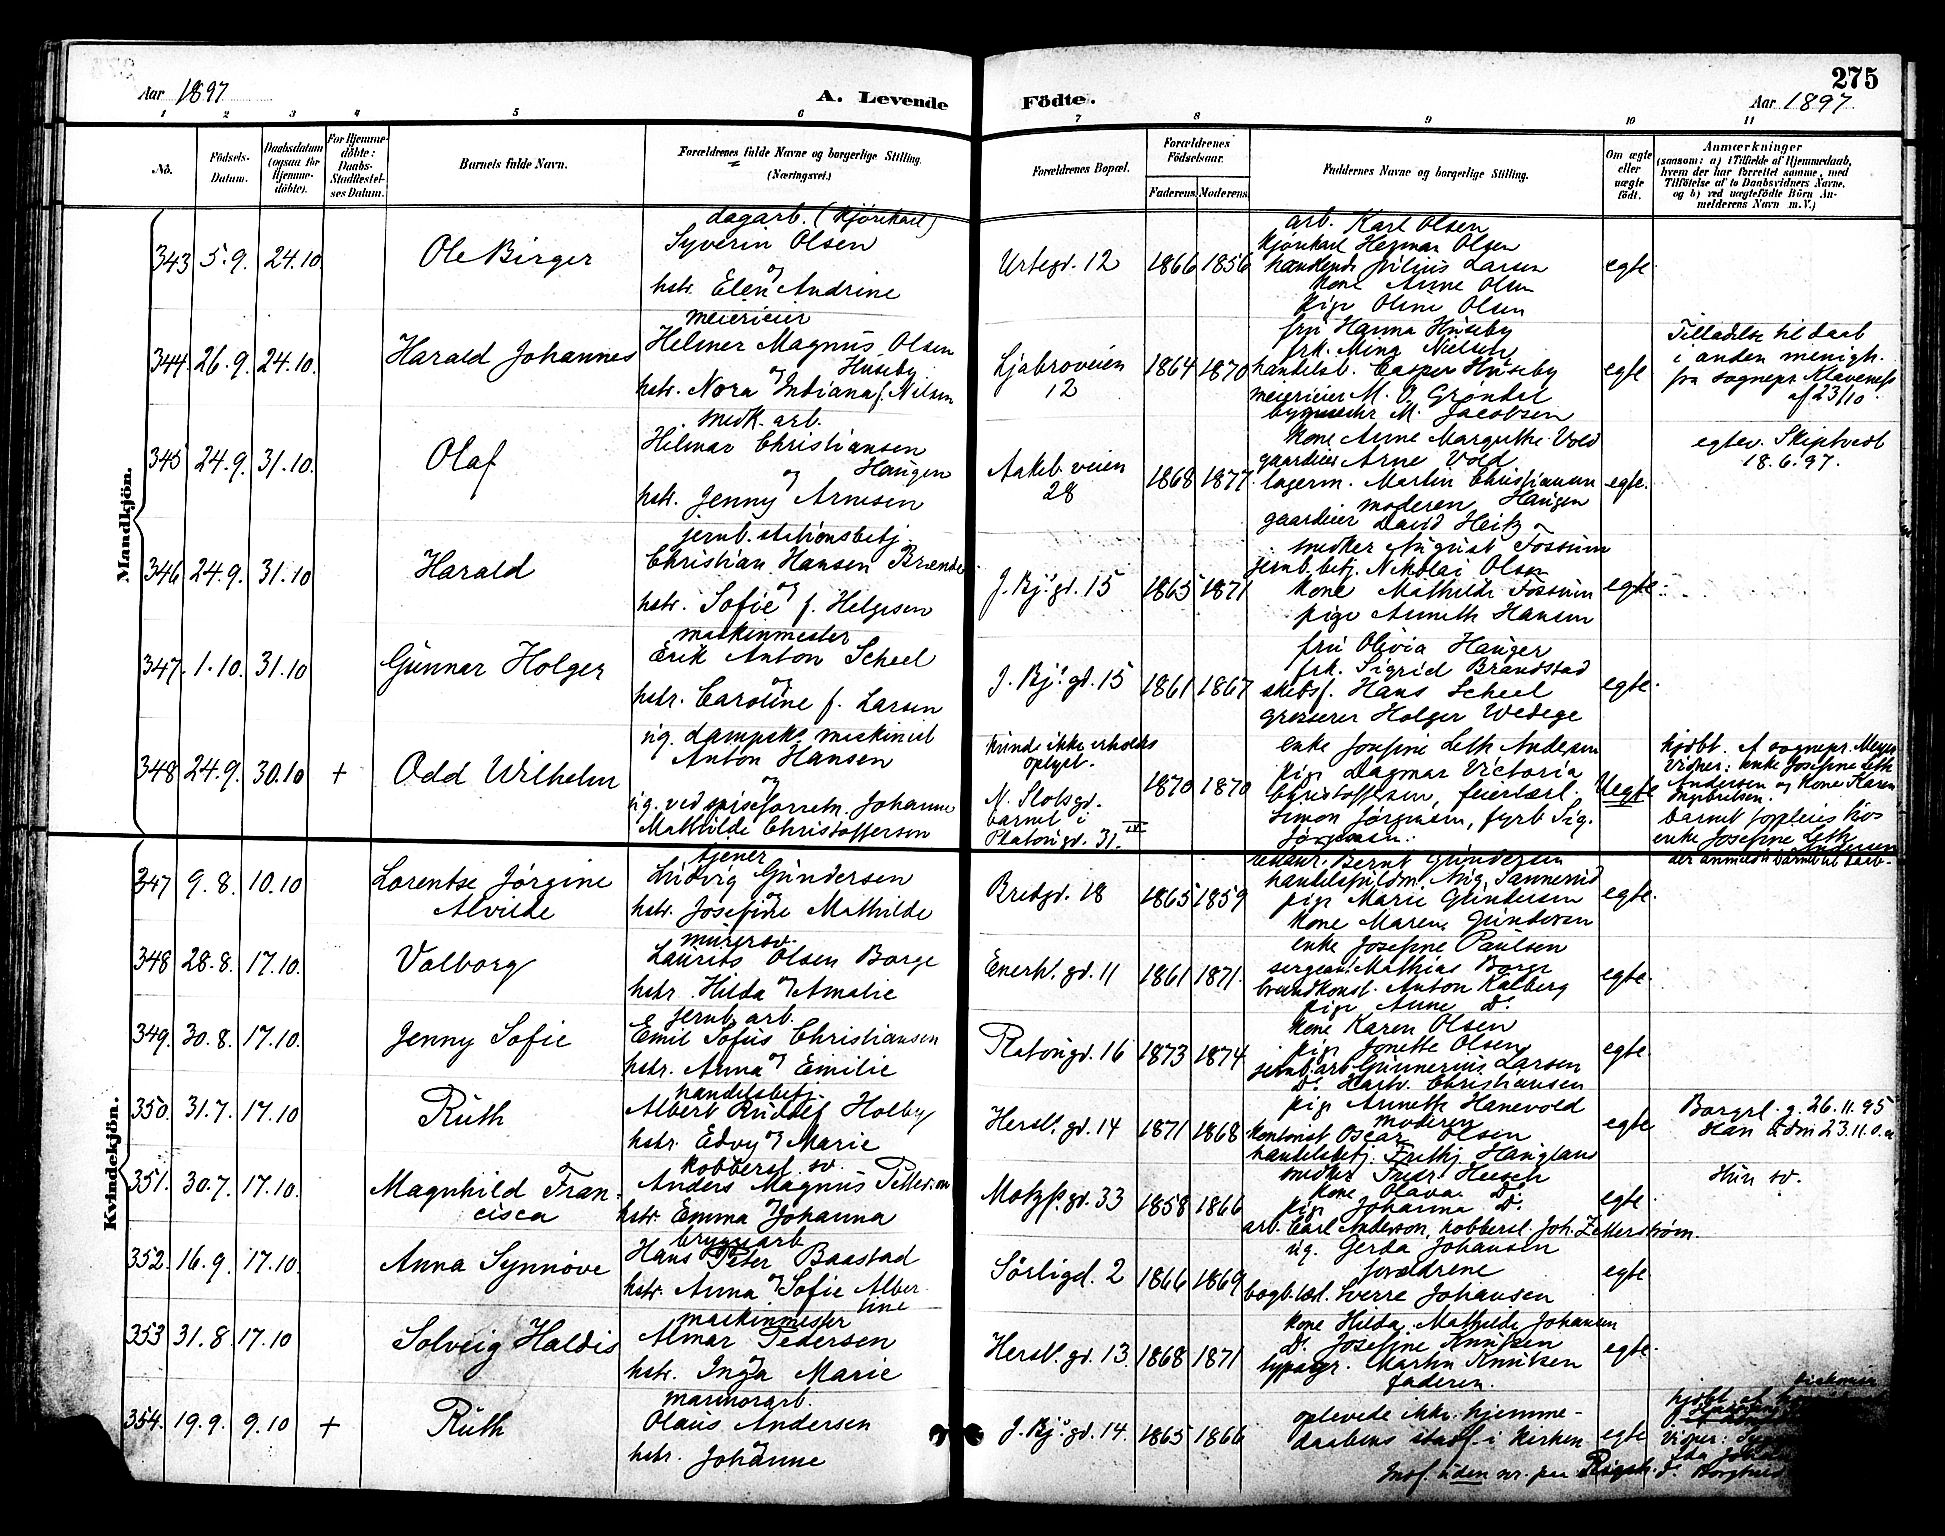 Aar 1897
A. Levende
Födte.
275
Aar 1897.
1 2 3 4 5 6 7 8 9 10 11
No.
Födsels-Datum.
Daabsdatum (ogsaa for Hjemme-döbte).
For Hjemme-döbte: Daabs-Stadfæstel-ses Datum.
Barnets fulde Navn.
Forældrenes fulde Navne og borgerlige Stilling.
(Næringsvei.)
Forældrenes Bopæl.
Forældrenes Födselsaar.
Faderens.
Moderens.
Faddernes Navne og borgerlige Stilling.
Om ægte eller uægte födt.
Anmærkninger
(saasom: a) i Tilfælde af Hjemmedaab,
hvem der har forrettet samme, med
Tilföielse af to Daabsvidners Navne,
og b) ved uægtefödte Börn An-
melderens Navn m.V.)
Mandkjön.
343 5.9. 24.10
Ole Birger
dagarb. (kjørekarl)
Syverin Olsen
og
hstr. Elen Andrine
Urtegd. 12
1866 1856
arb. Karl Olsen
kjørekarl Herman Olsen
handlende Julius Larsen
kone Anne Olsen
pige Oline Olsen
egte.
344. 26.9. 24.10.
Harald Johannes
meierieier
Helmer Magnus Olsen
Huseby
og
hstr. Nora Indiana f. Nilsen
Ljabroveien
12
1864 1870
fru Hanna Huseby
frk. Mina Nielsen
handelsb. Casper Huseby
meierieier M. O. Grøndal
M. Jacobsen
egte
Tilladelse til daab
i anden menigh.
fra sognepr. Klaveness
af 23/10.
345 24.9. 31.10.
Olaf
smedk. arb.
Hilmar Christiansen
og Haugen
hstr. Jenny Arnesen
Aakeb.veien
28
1868 1877.
kone Anne Margrethe Vold
gaardeier Arne Vold
lagerm. Martin Christiansen
moderen Haugen
gaardeier David Heitz
egte.
egtev. Skiptvedt
18.6.97.
346 24.9. 31.10
Harald
jernb. stationsbetj.
Christian Hansen Brænde
og
hstr. Sofie f. Helgesen
J. Bj. gd. 15
1865 1871
smedker August Fossum
jernb. betj. Nikolai Olsen
kone Mathilde Fossum
pige Anneth Hansen
egte.
347. 1.10. 31.10
Gunnar Holger
maskinmester
Erik Anton Scheel
og
hstr. Caroline f. Larsen
J. Bj. gd. 15
1861 1867
fru Olivia Hauger
frk. Sigrid Brandstad
skibsf. Hans Scheel
grosserer Holger Wedege
egte.
348 24.9. 30.10 +
Odd Wilhelm
ug. dampsk. maskinist
Anton Hansen
og
ug. ved spiseforretn. Johanne
Mathilde Christoffersen
kunde ikke erholdes
oplyst.
N. Slotsgd.
barnet i
Platougd. 31. IV
1870 1870
enke Josefine Leth Andersen
pige Dagmar Victoria
Christoffersen, feierlærl.
Simon Jørgensen, fyrb. Sig.
Jørgensen.
Uegte
hjdbt. af sognepr. Meyer
Vidner: enke Josefine Leth
Andersen og kone Karen
Ingebretsen.
barnet forpleies hos
enke Josefine Leth
Andersen
der anmeldte barnet til daab.
Kvindekjön.
347 9.8. 10.10
Lorentse Jørgine
Alvilde
tjener
Ludvig Gundersen
og
hstr. Josefine Mathilde
Bredgd. 18
1865 1859
restaur. Bernt Gundersen
handelsfuldm. Aug. Sannerud
pige Marie Gundersen
kone Maren Gundersen
egte.
348 28.8. 17.10.
Valborg
murersv.
Laurits Olsen Borge
og
hstr. Hilda Amalie
Enerh. gd. 11
1861 1871.
enke Josefine Paulsen
sergeant Mathias Borge
brandkonst. Anton Kalberg
pige Anne Do.
egte.
349. 30.8. 17.10.
Jenny Sofie
jernb. arb.
Emil Sofus Christiansen
og
hstr. Anna Emilie
Platougd. 16
1873 1874
kone Karen Olsen
pige Jonette Olsen
jernb. arb. Gunnerius Larsen
Do. Hartv. Christiansen
egte.
350. 31.7. 17.10
Ruth
handelsbetj.
Albert Rudolf Holby
og
hstr. Edvy Marie
Hersl. gd. 14
1871 1868
pige Anneth Hanevold
moderen
kontorist Oscar Olsen
handelsbetj. Frithj. Haugland
egte
Borgrl. g. 26.11.95
351. 30.7. 17.10.
Magnhild Fran-
cisca
kobbersl. sv.
Anders Magnus Petterson
og
hstr. Emma Johanna
Motzf. gd. 33
1858 1866
smedker Fredr. Heesch
kone Olava Do.
pige Johanna Do.
arb. Carl Anderson, kobbersl. Joh. Zetterstrøm.
egte
Hun sv.
352. 16.9. 17.10.
Anna Synnøve
bryggearb.
Hans Peter Baastad
og
hstr. Anna Sofie Alber-
tine
Sørligd. 2
1866 1869
ug. Gerda Johansen
forældrene
bogb. lærl. Sverre Johansen
egte.
353 31.8. 17.10
Solveig Haldis
maskinmester
Almar Pedersen
og
hstr. Inga Marie
Hersl. gd. 13.
1868 1871
kone Hilda Mathilde Johansen
Do. Josefine Knutsen
typogr. Martin Knutsen
faderen.
egte.
354. 19.9. 9.10 +
Ruth
marmorarb.
Olaus Andersen
og
hstr. Johanne
J. Bj. gd. 14.
1865 1866
oplevede ikke hjemme-
daabens stadf. i kirken
Indf. uden nr. paa Rigsh.
egte
hjdbt. af
Vidner:
Ida